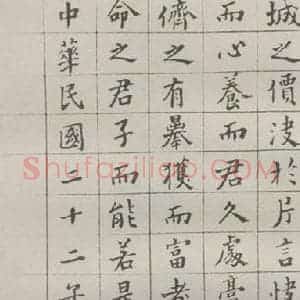 城之價決於片言
而心養而君久處
儕之有暴獲而富者
命之君子而能若是
中華民國二十二年
Shufaziliao.com